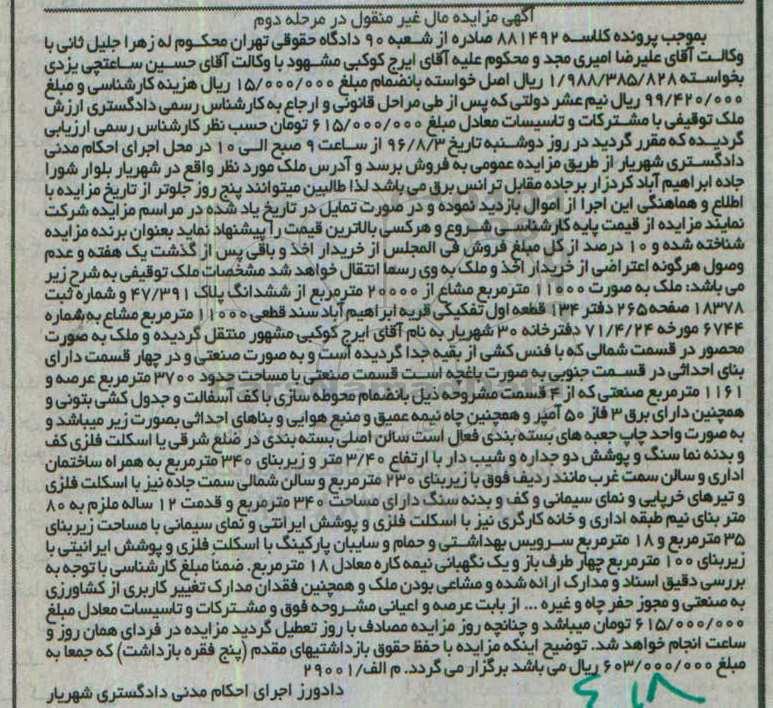 آگهی مزایده مال غیر منقول در مرحله دوم
بموجب پرونده کلاسه ۸۸۱۴۹۲ صادره از شعبه ۹۰ دادگاه حقوقی تهران محکوم له زهرا جلیل ثانی با
وکالت آقای علیرضا امیری مجد و محکوم علیه آقای ایرج کوکبی مشهود با وکالت آقای حسین ساعتچی یزدی
بخواسته ۱/۹۸۸/۳۸۵/۸۲۸ ریال اصل خواسته بانضمام مبلغ ۱۵/۰۰۰/۰۰۰ ریال هزینه کارشناسی و مبلغ
۹۹/۴۲۰/۰۰۰ ریال نیم عشر دولتی که پس از طی مراحل قانونی و ارجاع به کارشناس رسمی دادگستری ارزش
ملک توقیفی با مشترکات و تاسیسات معادل مبلغ ۶۱۵/۰۰۰/۰۰۰ تومان حسب نظر کارشناس رسمی ارزیابی
گردیده که مقرر گردید در روز دوشنبه تاریخ ۹۶/۸/۳ از ساعت ۹ صبح الی ۱۰ در محل اجرای احکام مدنی
دادگستری شهریار از طریق مزایده عمومی به فروش برسد و آدرس ملک مورد نظر واقع در شهریار بلوار شورا
جاده ابراهیم آباد کردزار برجاده مقابل ترانس برق می باشد لذا طالبین میتوانند پنج روز جلوتر از تاریخ مزایده با
اطلاع و هماهنگی این اجرا از اموال بازدید نموده و در صورت تمایل در تاریخ یاد شده در مراسم مزایده شرکت
نمایند مزایده از قیمت پایه کارشناسی شروع و هرکسی بالاترین قیمت را پیشنهاد نماید بعنوان برنده مزایده
شناخته شده و ۱۰ درصد از کل مبلغ فروش فی المجلس از خریدار اخذ و باقی پس از گذشت یک هفته و عدم
وصول هرگونه اعتراضی از خریدار اخذ و ملک به وی رسما انتقال خواهد شد مشخصات ملک توقیفی به شرح زیر
می باشد: ملک به صورت ۱۱۰۰۰ مترمربع مشاع از ۲۰۰۰۰ مترمربع از ششدانگ پلاک ۴۷/۳۹۱ و شماره ثبت
۱۸۳۷۸ صفحه ۲۶۵ دفتر ۱۳۴ قطعه اول تفکیکی قریه ابراهیم آباد سند قطعی ۱۱۰۰۰ مترمربع مشاع به شماره
۶۷۴۴ مورخه ۷۱/۴/۲۴ دفترخانه ۳۰ شهریار به نام آقای ایرج کوکبی مشهور منتقل گردیده و ملک به صورت
محصور در قسمت شمالی که با فنس کشی از بقیه جدا گردیده است و به صورت صنعتی و در چهار قسمت دارای
بنای احداثی در قسمت جنوبی به صورت باغچه است قسمت صنعتی با مساحت حدود ۳۷۰۰ مترمربع عرصه و
۱۱۶۱ مترمربع صنعتی که از ۴ قسمت مشروحه ذیل بانضمام محوطه سازی با کف آسفالت و جدول کشی بتونی و
همچنین دارای برق ۳ فاز ۵۰ آمپر و همچنین چاه نیمه عمیق و منبع هوایی و بناهای احداثی بصورت زیر میباشد و
به صورت واحد چاپ جعبه های بسته بندی فعال است سالن اصلی بسته بندی در ضلع شرقی یا اسکلت فلزی کف
و بدنه نما سنگ و پوشش دو جداره و شیب دار با ارتفاع ۳/۴۰ متر و زیربنای ۳۴۰ مترمربع به همراه ساختمان
اداری و سالن سمت غرب مانند ردیف فوق با زیربنای ۲۳۰ مترمربع و سالن شمالی سمت جاده نیز با اسکلت فلزی
و تیرهای خرپایی و نمای سیمانی و کف و بدنه سنگ دارای مساحت ۳۴۰ مترمربع و قدمت ۱۲ ساله ملزم به ۸۰
متر بنای نیم طبقه اداری و خانه کارگری نیز با اسکلت فلزی و پوشش ایرانتی و نمای سیمانی با مساحت زیربنای
۳۵ مترمربع و ۱۸ مترمربع سرویس بهداشتی و حمام و سایبان پارکینگ با اسکلت فلزی و پوشش ایرانیتی با
زیربنای ۱۰۰ مترمربع چهار طرف باز و یک نگهبانی نیمه کاره معادل ۱۸ مترمربع. ضمنا مبلغ کارشناسی با توجه به
بررسی دقیق اسناد و مدارک ارائه شده و مشاعی بودن ملک و همچنین فقدان مدارک تغییر کاربری از کشاورزی
به صنعتی و مجوز حفر چاه و غیره ... از بابت عرصه و اعیانی مشروحه فوق و مشترکات و تاسیسات معادل مبلغ
۶۱۵/۰۰۰/۰۰۰ تومان میباشد و چنانچه روز مزایده مصادف با روز تعطیل گردید مزایده در فردای همان روز و
ساعت انجام خواهد شد. توضیح اینکه مزایده با حفظ حقوق بازداشتیهای مقدم (پنج فقره بازداشت) که جمعا به
مبلغ ۶۰۳/۰۰۰/۰۰۰ ریال می باشد برگزار می گردد. م الف/۲۹۰۰۱
دادورز اجرای احکام مدنی دادگستری شهریار